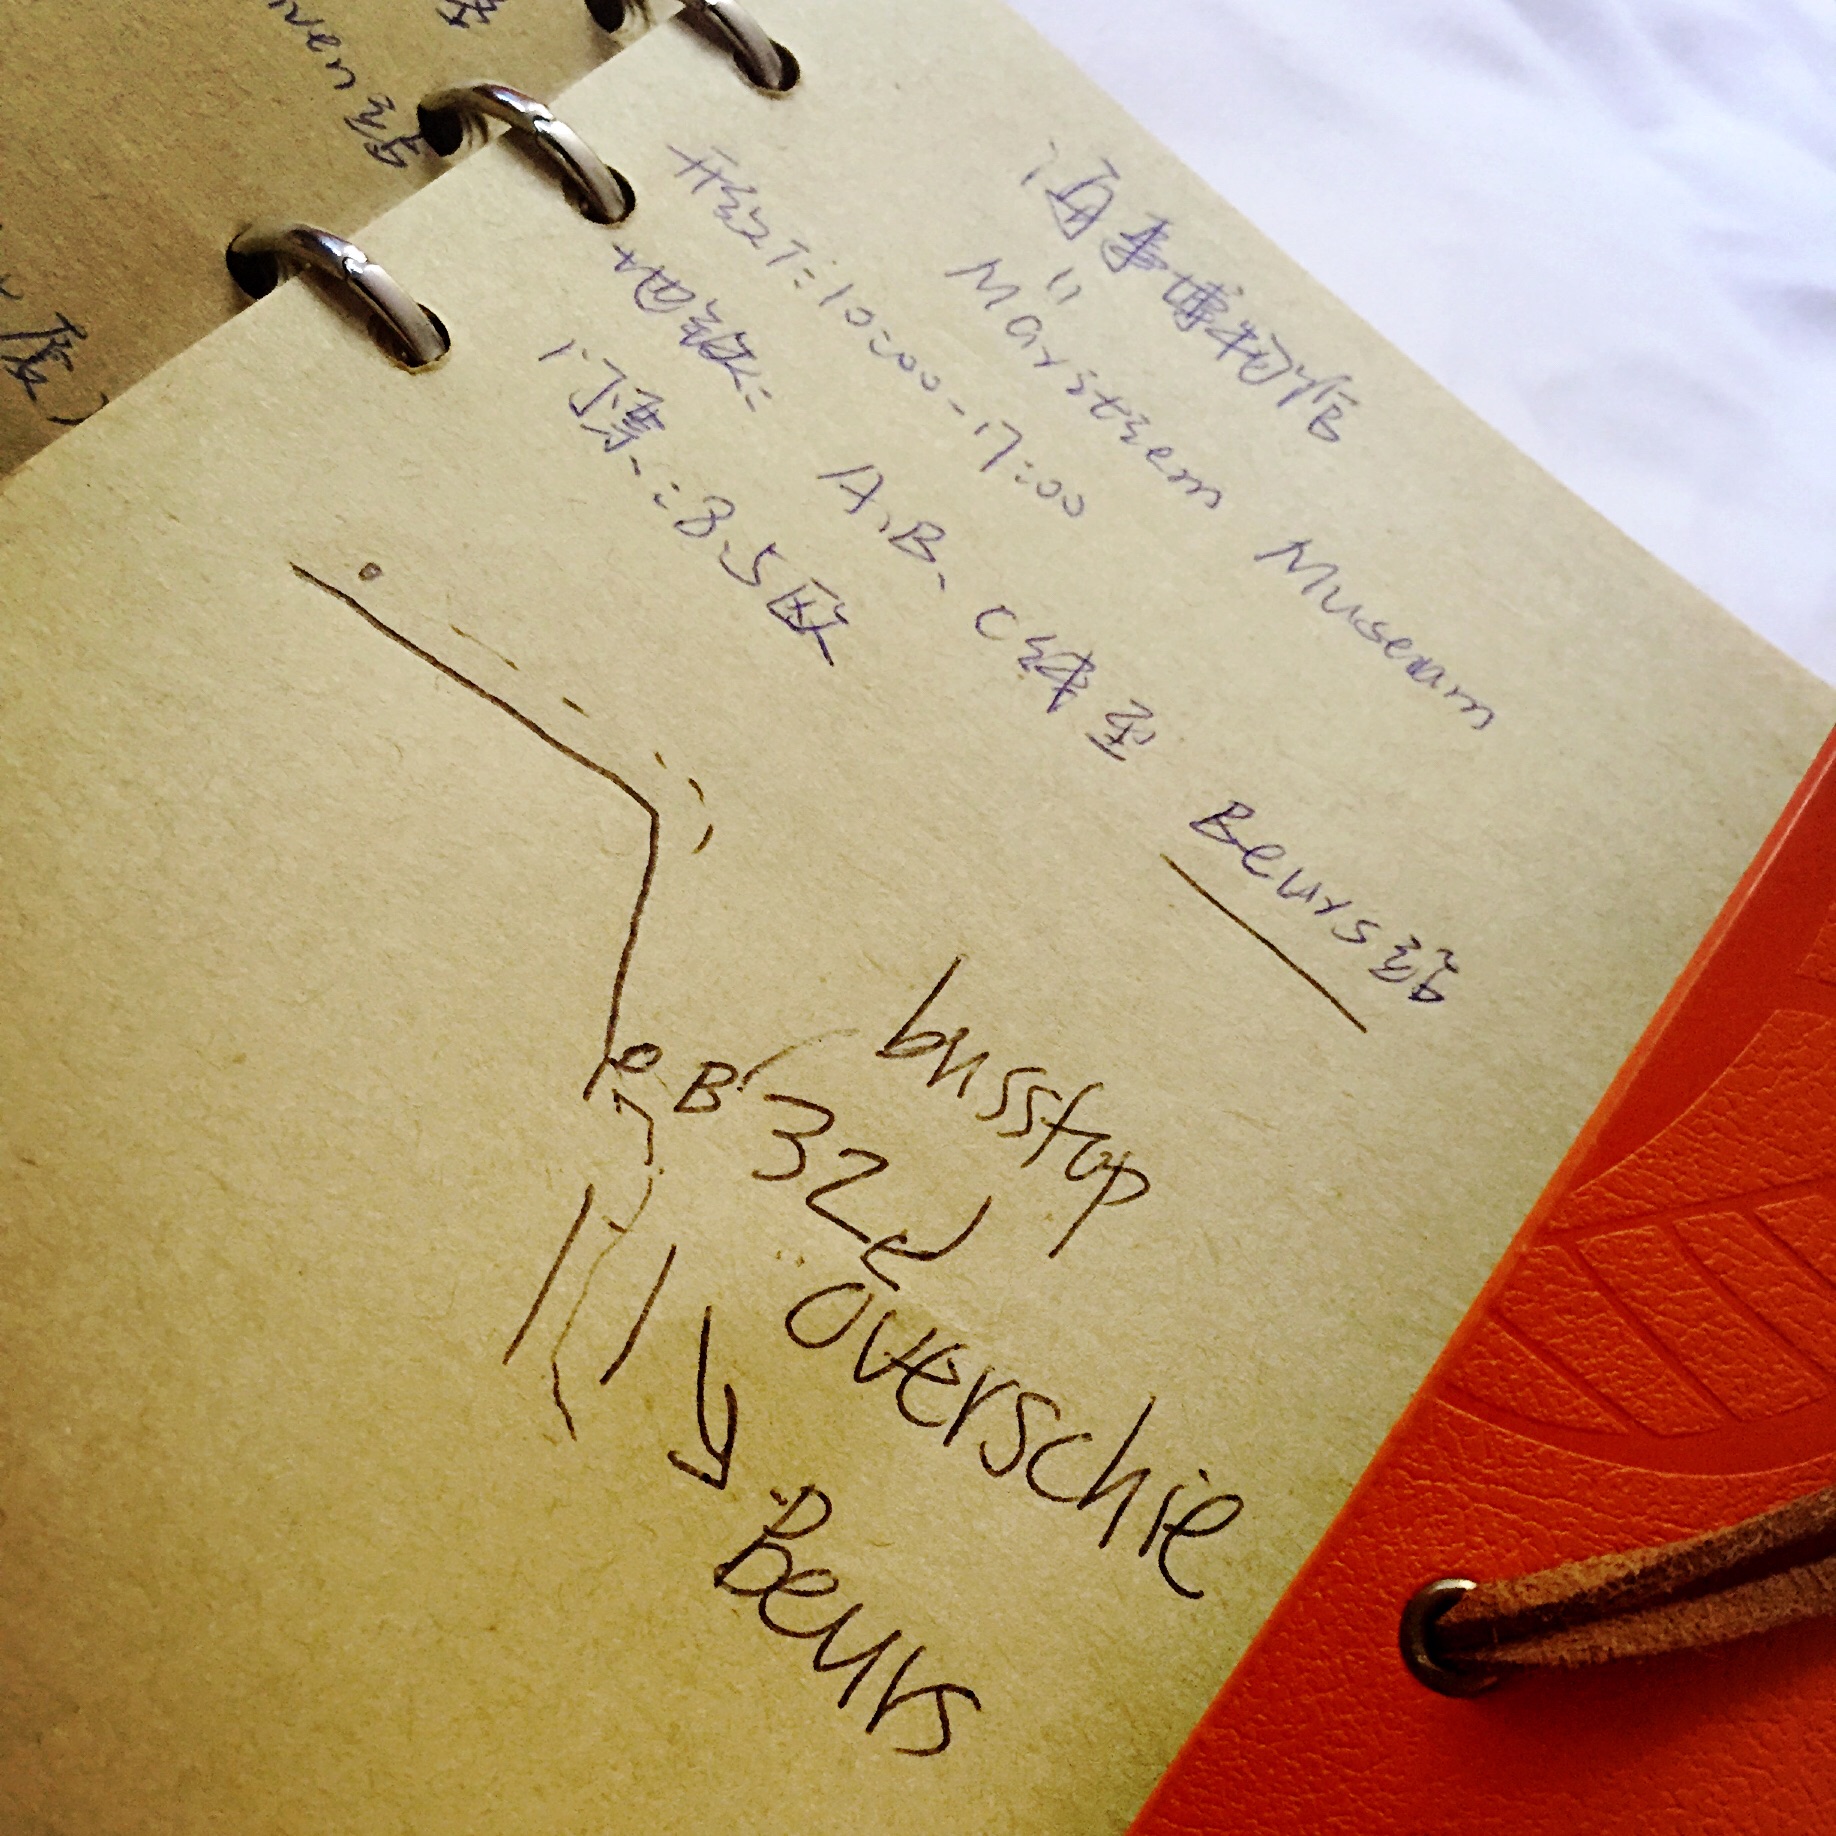 海事博物馆
Märstem Museum
开放T:10:00-17:00
地铁: A、B、C线至 Beurs站
门票:8.5欧
busstop
B 32
overschie
Beurs
ven站
度)